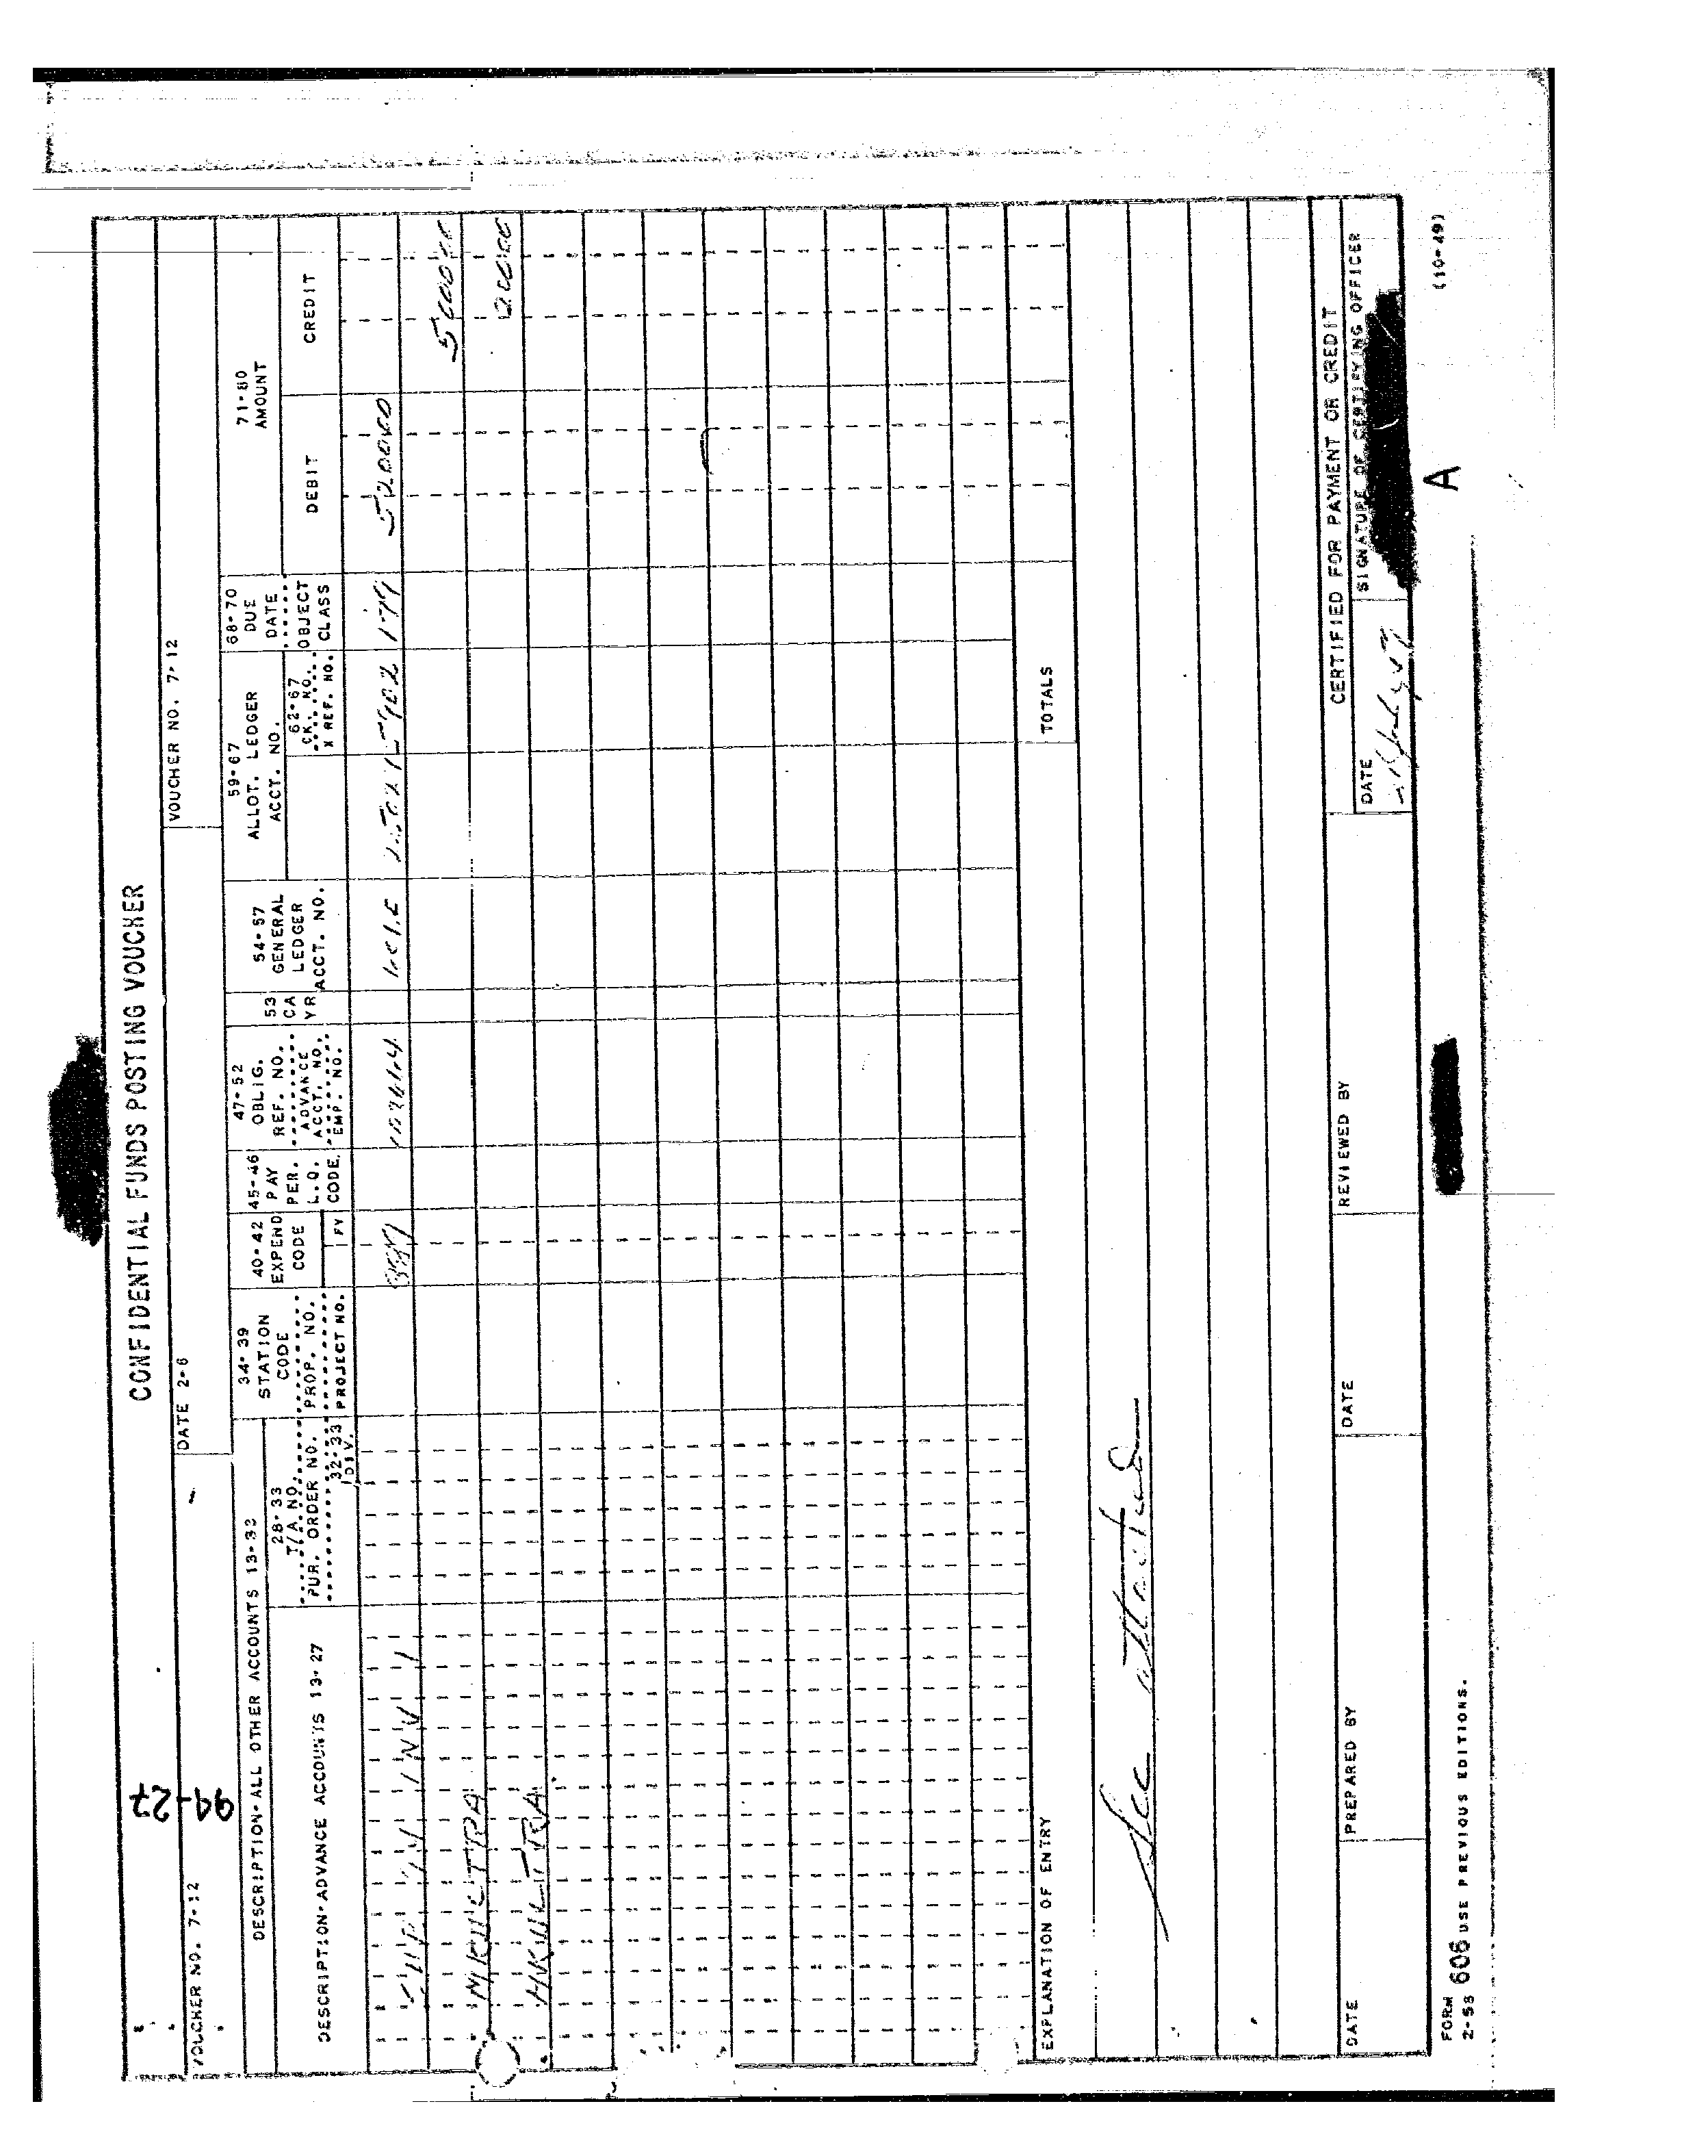 99-27
CONFIDENTIAL FUNDS POSTING VOUCHER
VOUCHER NO. 7-12
DATE 2-6
VOUCHER NO. 7-12
DESCRIPTION-ALL OTHER ACCOUNTS 13-33
DESCRIPTION-ADVANCE ACCOUNTS 13-27
28-33
T/A NO.
PUR. ORDER NO.
32-33
DIV.
34-39
STATION
CODE
PROP. NO.
PROJECT NO.
40-42
EXPEND
CODE
FY
45-46
PAY
PER.
L.Q.
CODE
47-52
OBLIG.
REF. NO.
ADVANCE
ACCT. NO.
EMP. NO.
53
CA
YR
54-57
GENERAL
LEDGER
ACCT. NO.
59-67
ALLOT. LEDGER
ACCT. NO.
62-67
CK. NO.
X REF. NO.
68-70
DUE
DATE
OBJECT
CLASS
71-80
AMOUNT
DEBIT
CREDIT
520000
500000
20000
MKULTRA
MKULTRA
TOTALS
EXPLANATION OF ENTRY
See attached
CERTIFIED FOR PAYMENT OR CREDIT
DATE
PREPARED BY
DATE
REVIEWED BY
DATE
SIGNATURE OF CERTIFYING OFFICER
FORM
2-58 606 USE PREVIOUS EDITIONS.
A
(10-49)